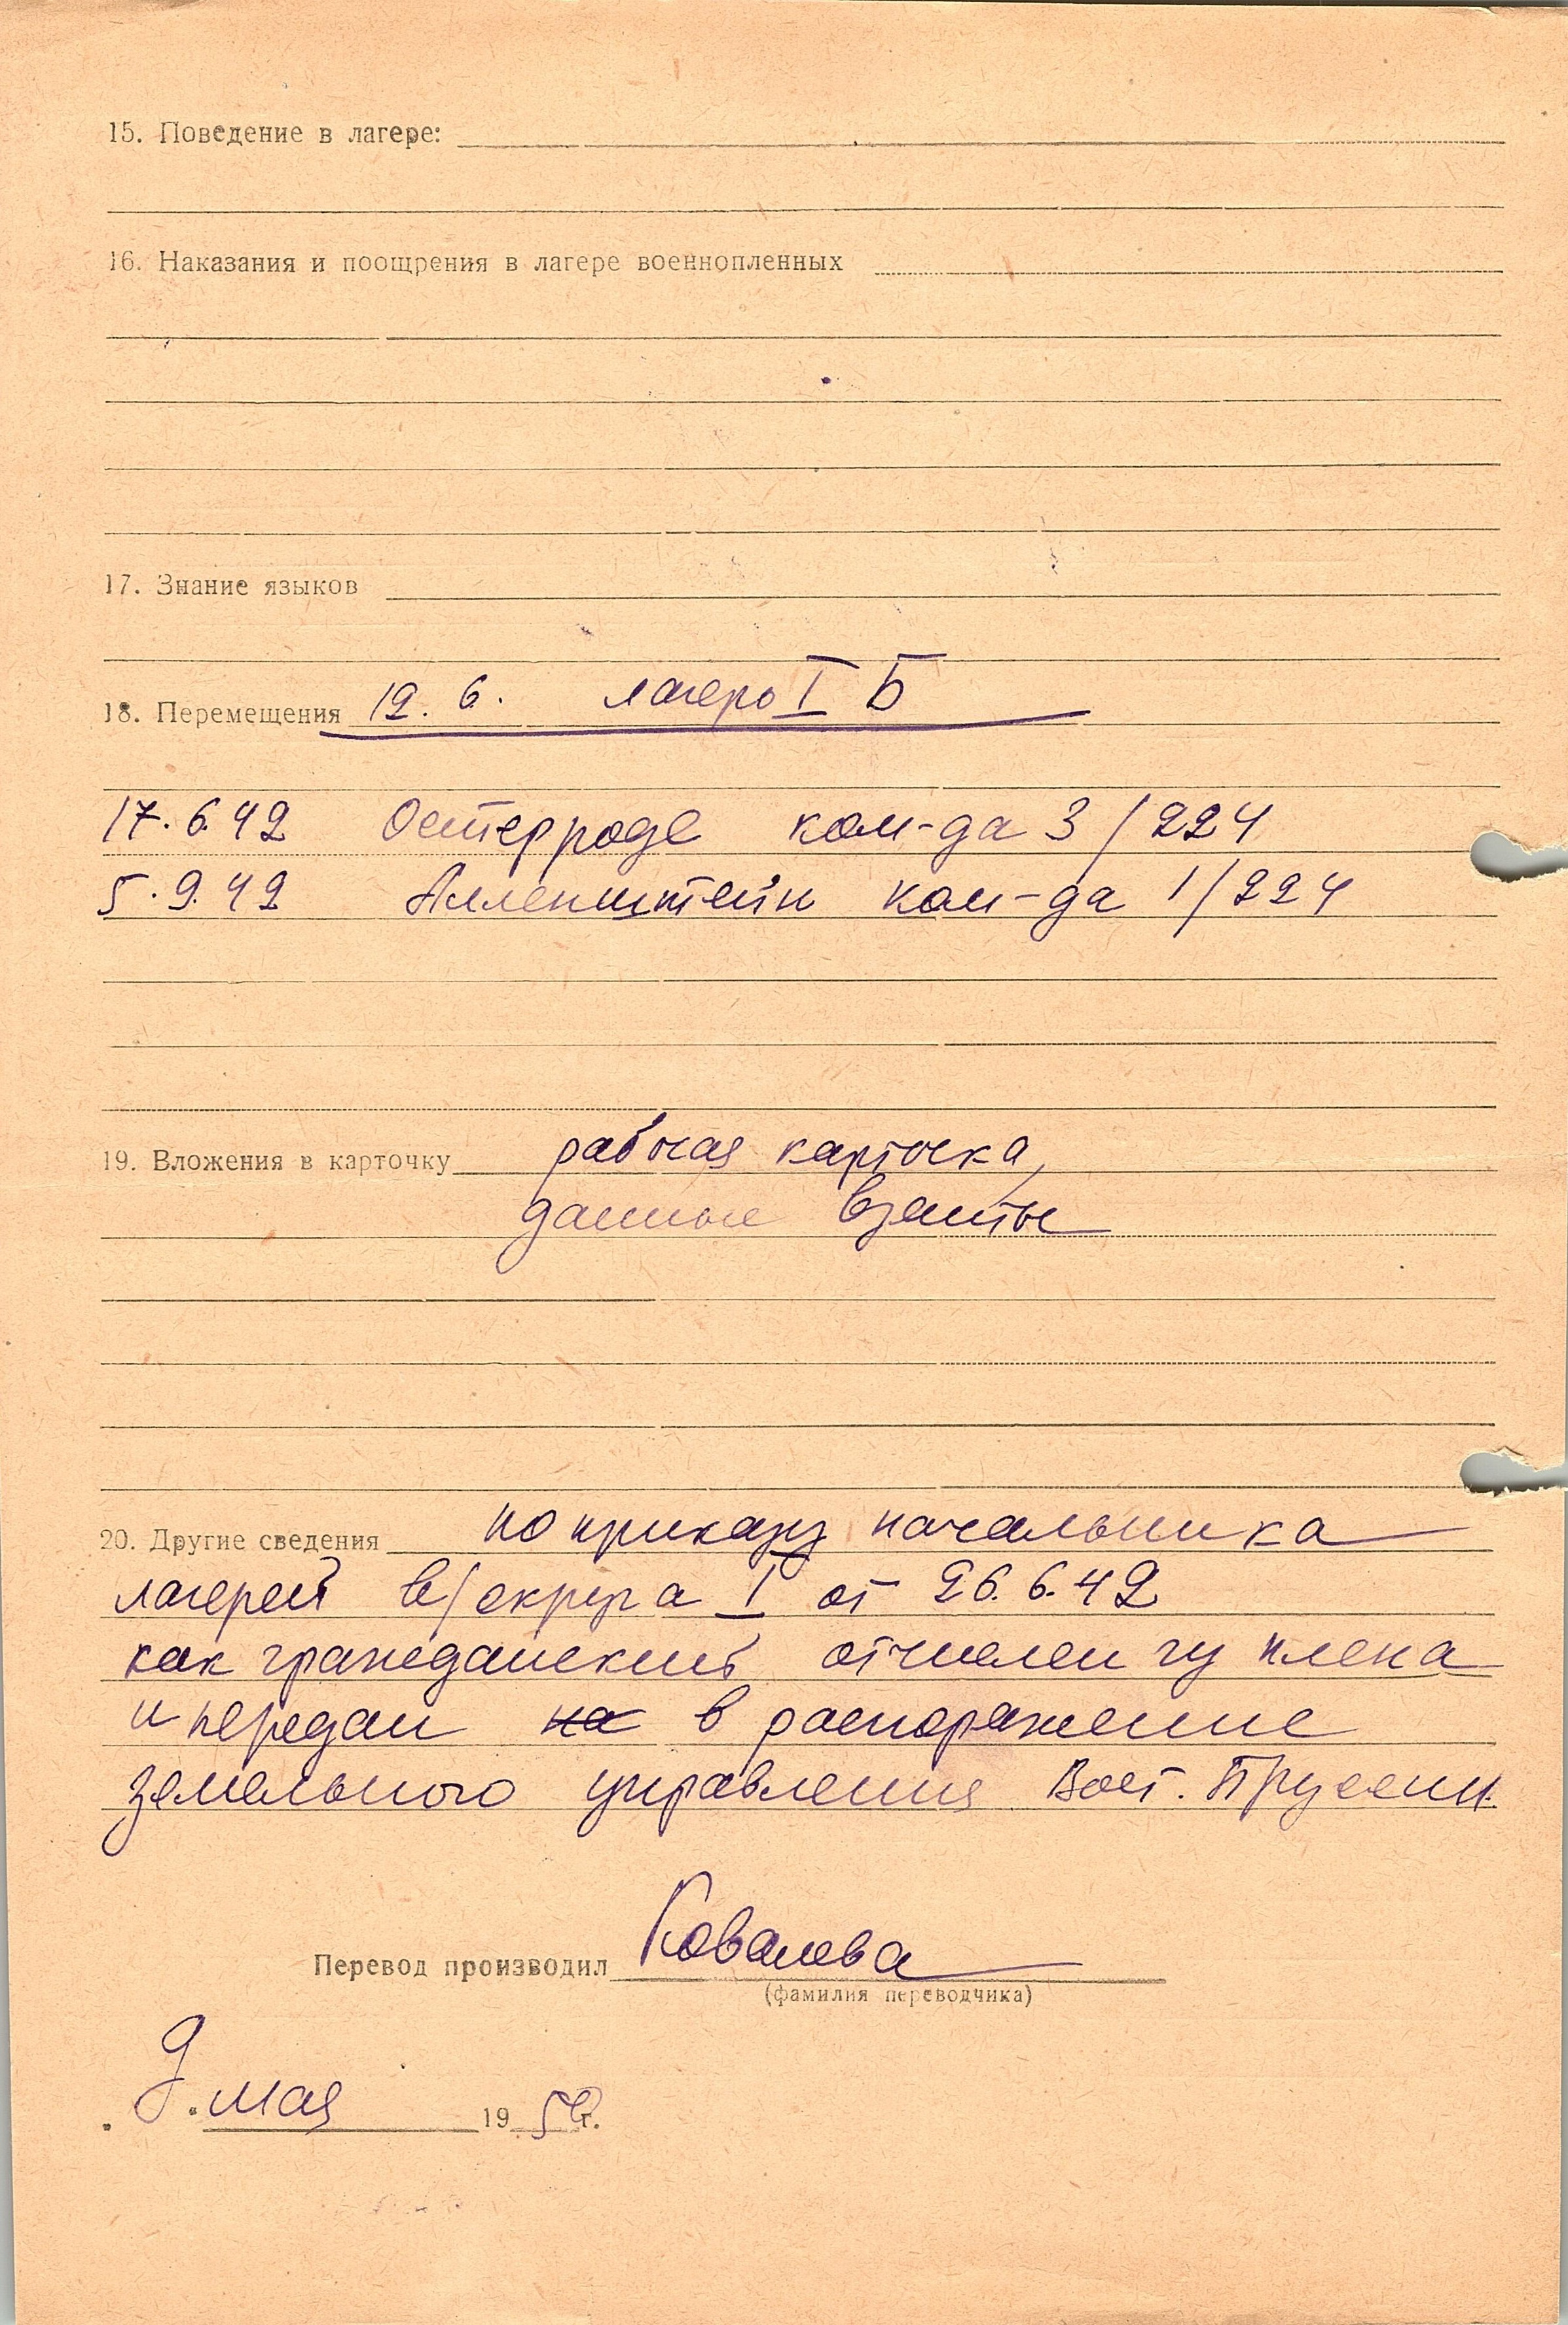 15. Поведение в лагере:
16. Наказания и поощрения в лагере военнопленных
17. Знание языков
18. Перемещения 12. 6. лагерь I Б
17. 6.42 Остерроде ком-да 3/224
5. 9.42 Алленштейн ком-да 1/224
19. Вложения в карточку рабочая карточка,
данные взяты
20. Другие сведения по приказу начальника
лагерей в/округа I от 26. 6. 42
как гражданский отчислен из плена
и передан на в распоряжение
земельного управления Вост. Пруссии.
Перевод производил Ковалева
(фамилия переводчика)
9. мая 19 г.